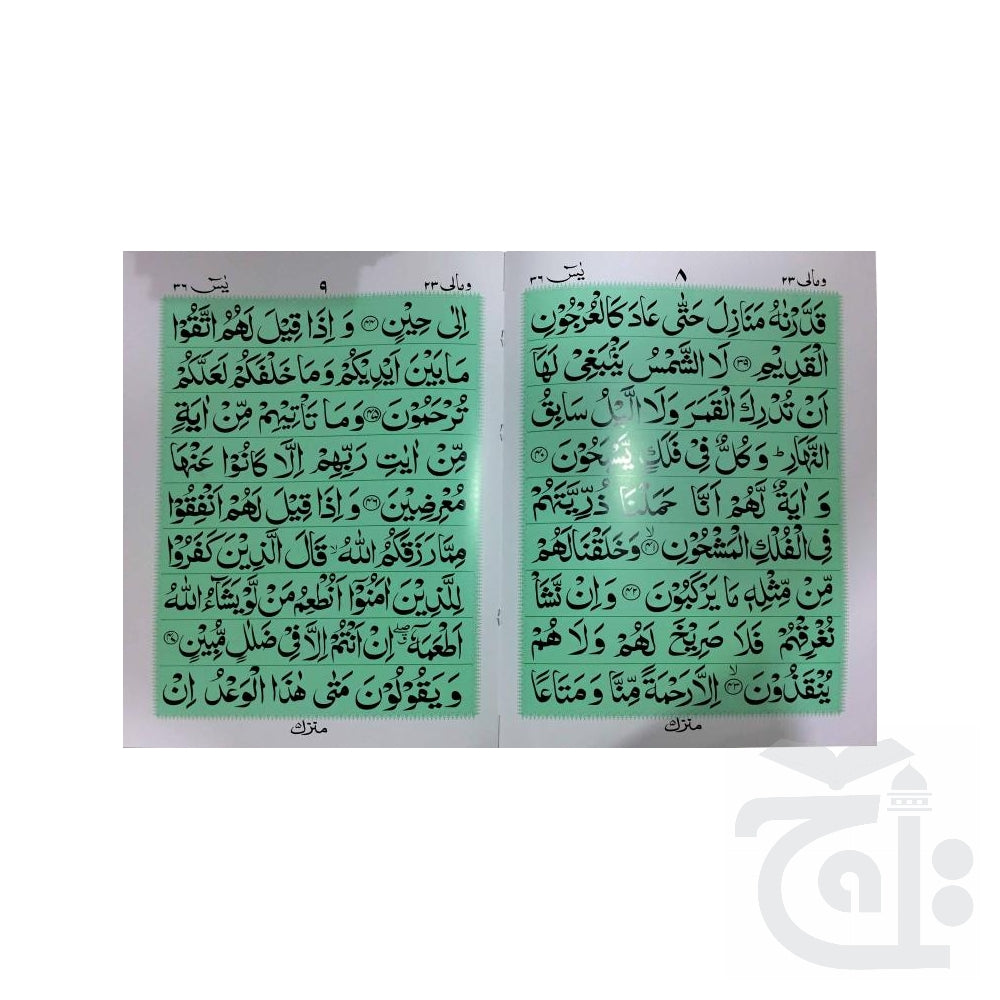 ومالی ۲۳
۸
یٰسٓ ۳۶
قَدَّرْنٰهُ مَنَازِلَ حَتّٰى عَادَ كَالْعُرْجُوْنِ
الْقَدِيْمِ ۝۳۹ لَا الشَّمْسُ يَنْۢبَغِىْ لَهَاۤ
اَنْ تُدْرِكَ الْقَمَرَ وَلَا الَّيْلُ سَابِقُ
النَّهَارِ ؕ وَ كُلٌّ فِىْ فَلَكٍ يَّسْبَحُوْنَ ۝۴۰
وَ اٰيَةٌ لَّهُمْ اَنَّا حَمَلْنَا ذُرِّيَّتَهُمْ
فِى الْفُلْكِ الْمَشْحُوْنِ ۙ۝۴۱ وَ خَلَقْنَا لَهُمْ
مِّنْ مِّثْلِهٖ مَا يَرْكَبُوْنَ ۝۴۲ وَ اِنْ نَّشَاْ
نُغْرِقْهُمْ فَلَا صَرِيْخَ لَهُمْ وَلَا هُمْ
يُنْقَذُوْنَ ۙ۝۴۳ اِلَّا رَحْمَةً مِّنَّا وَ مَتَاعًا
منزل ۵
ومالی ۲۳
۹
یٰسٓ ۳۶
اِلٰى حِيْنٍ ۝۴۴ وَ اِذَا قِيْلَ لَهُمُ اتَّقُوْا
مَا بَيْنَ اَيْدِيْكُمْ وَ مَا خَلْفَكُمْ لَعَلَّكُمْ
تُرْحَمُوْنَ ۝۴۵ وَ مَا تَاْتِيْهِمْ مِّنْ اٰيَةٍ
مِّنْ اٰيٰتِ رَبِّهِمْ اِلَّا كَانُوْا عَنْهَا
مُعْرِضِيْنَ ۝۴۶ وَ اِذَا قِيْلَ لَهُمْ اَنْفِقُوْا
مِمَّا رَزَقَكُمُ اللّٰهُ ۙ قَالَ الَّذِيْنَ كَفَرُوْا
لِلَّذِيْنَ اٰمَنُوْۤا اَنُطْعِمُ مَنْ لَّوْ يَشَآءُ اللّٰهُ
اَطْعَمَهٗۤ ۖ ق اِنْ اَنْتُمْ اِلَّا فِىْ ضَلٰلٍ مُّبِيْنٍ ۝۴۷
وَ يَقُوْلُوْنَ مَتٰى هٰذَا الْوَعْدُ اِنْ
منزل ۵